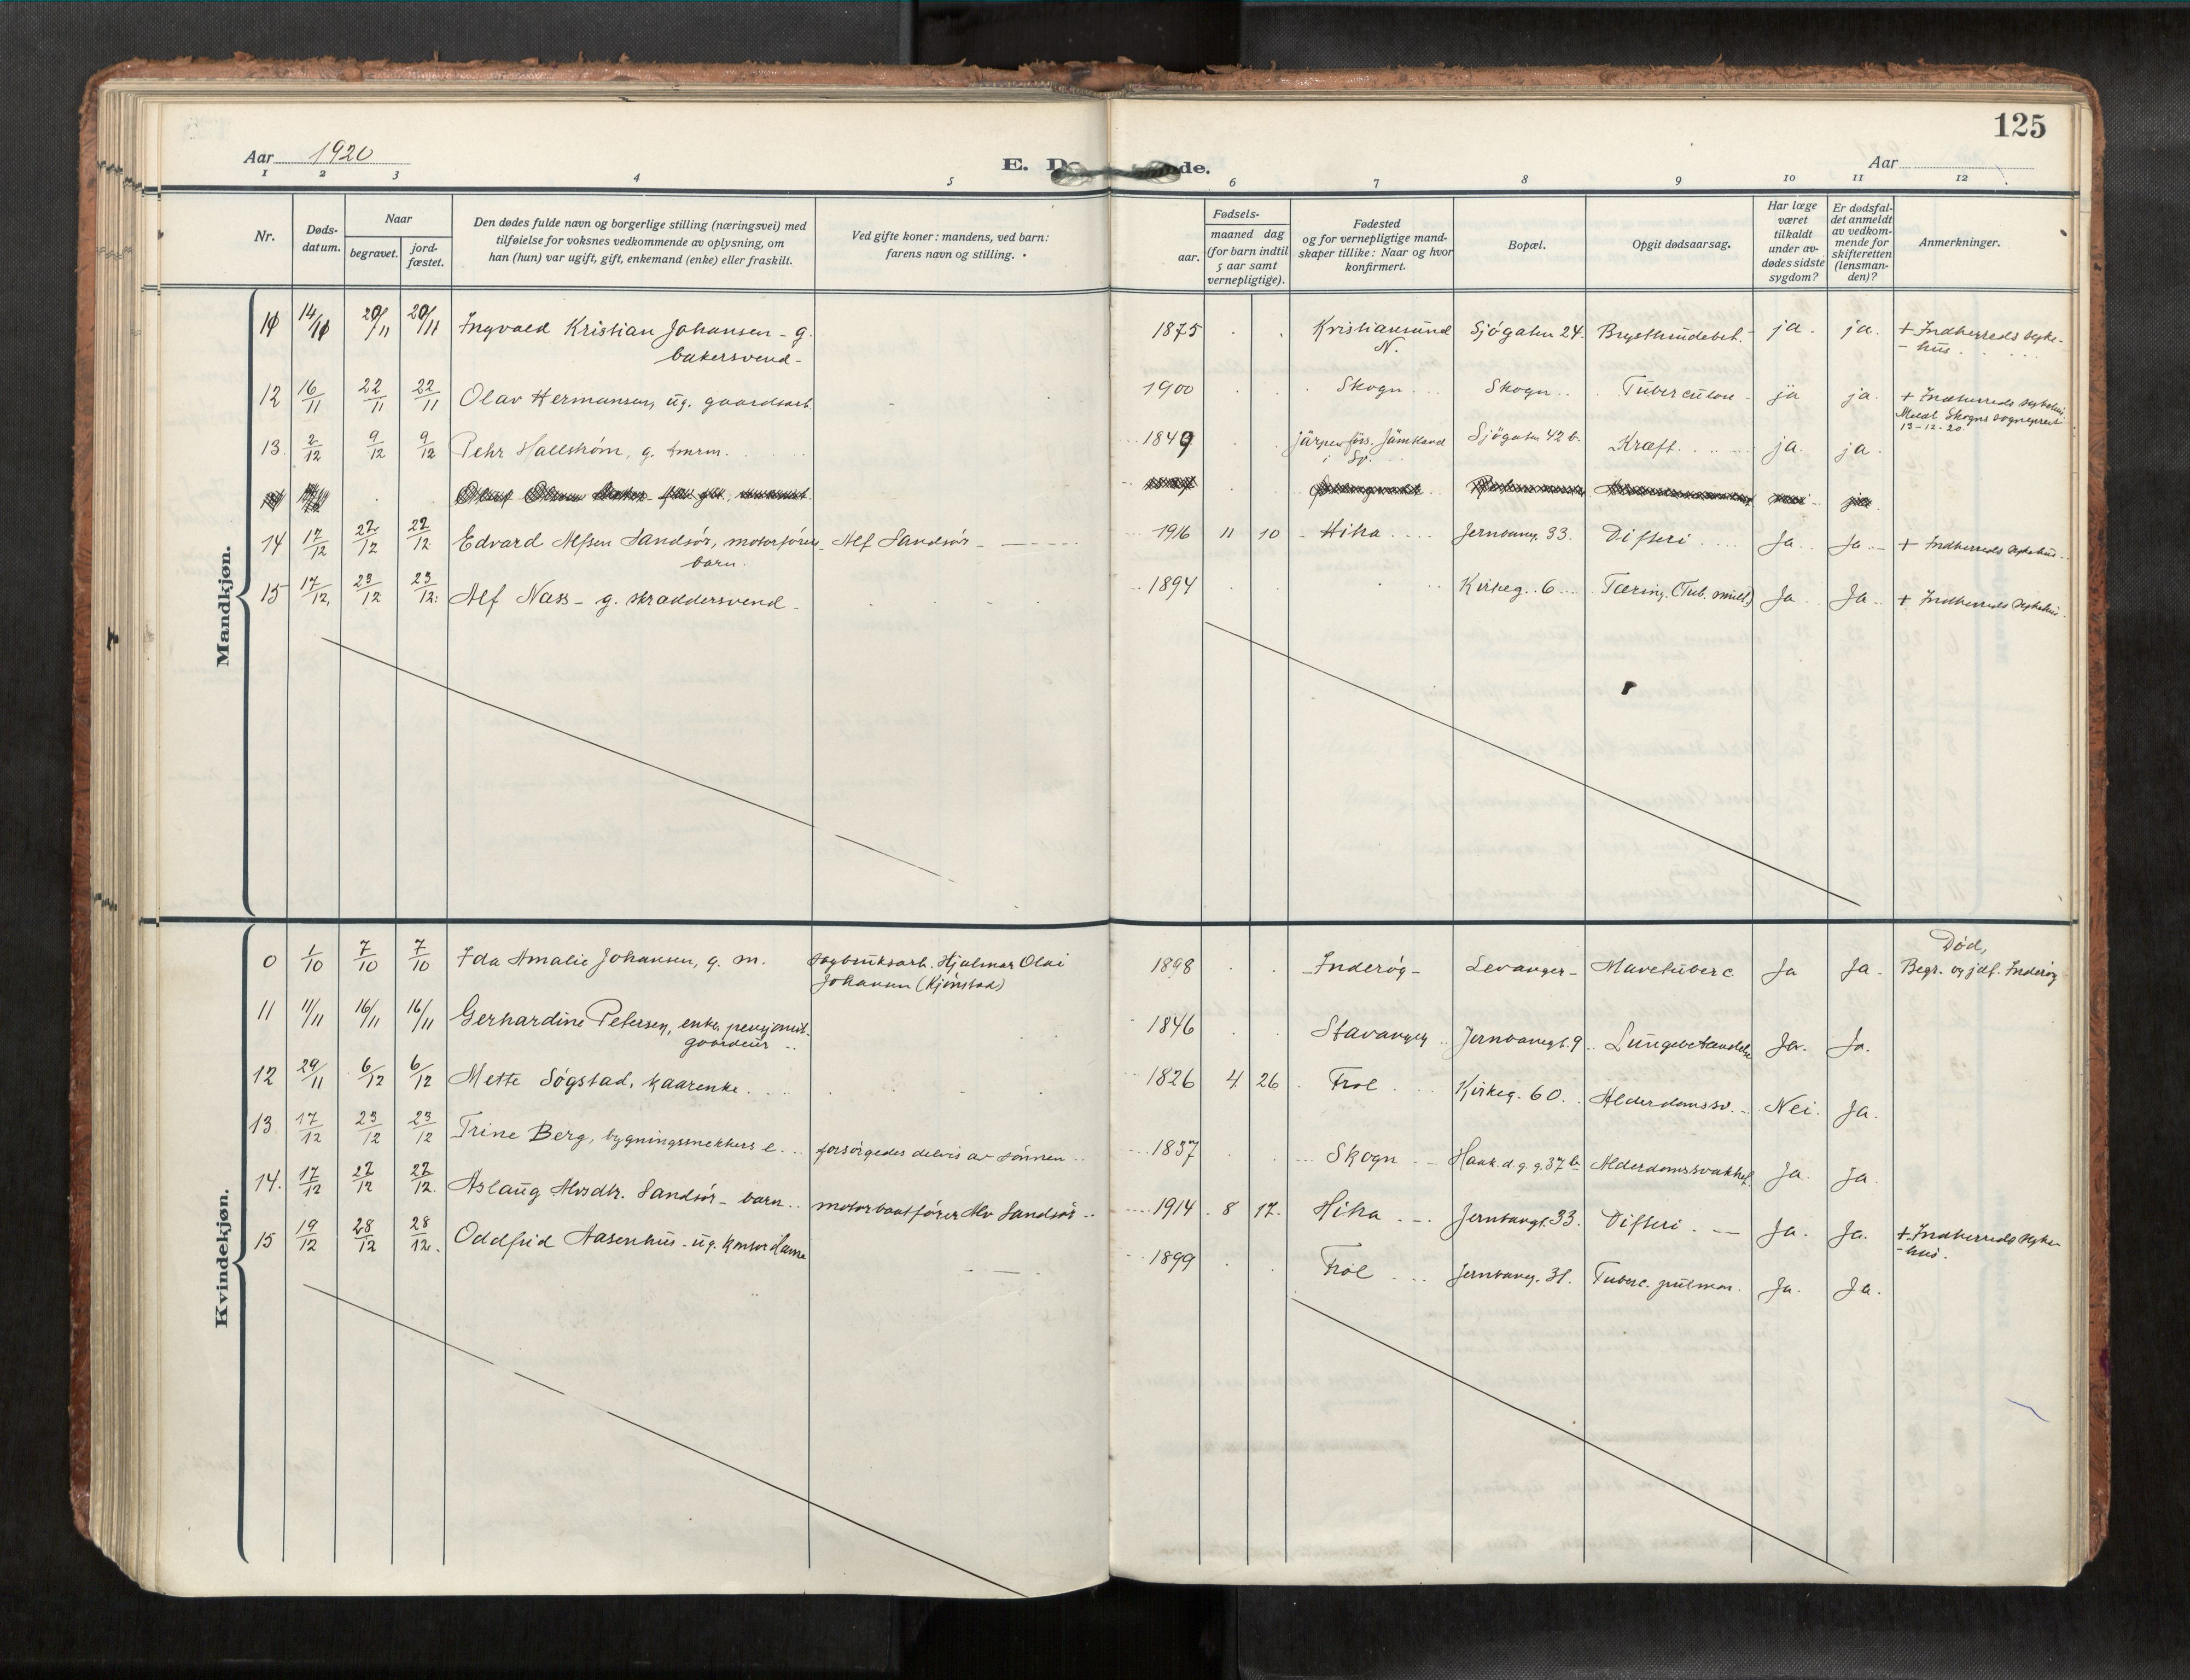 125
Aar 1920
E. D de.
Aar
1 2 3 4 5 6 7 8 9 10 11 12
Nr.
Døds-
datum.
Naar
begravet.
jord-
fæstet.
Den dødes fulde navn og borgerlige stilling (næringsvei) med
tilføielse for voksnes vedkommende av oplysning, om
han (hun) var ugift, gift, enkemand (enke) eller fraskilt.
Ved gifte koner: mandens, ved barn:
farens navn og stilling.
Fødsels-
aar.
maaned dag
(for barn indtil
5 aar samt
vernepligtige).
Fødested
og for vernepligtige mand-
skaper tillike: Naar og hvor
konfirmert.
Bopæl.
Opgit dødsaarsag.
Har læge
været
tilkaldt
under av-
dødes sidste
sygdom?
Er dødsfal-
det anmeldt
av vedkom-
mende for
skifteretten
(lensman-
den)?
Anmerkninger.
Mandkjøn.
11 14/11 20/11 20/11 Ingvald Kristian Johansen - g. 1875 Kristiansund Sjøgaten 24. ja. ja. + Indherreds syke-
bakersvend - N. - hus.
12 16/11 22/11 22/11 Olav Hermansen, ug. gaardsarb. 1900 Skogn Skogn Tuberculose - ja ja. + Indherreds sykehus,
Medl. Skogns sogneprest
13-12-20.
13. 2/12 9/12 9/12 Pehr Hallstrøm, g. tmrm. 1849 Järpen förs. Jämtland Sjøgaten 42 b. Kræft. ja. ja.
i Sv.
14 17/12 22/12 22/12 Edvard Alfsen Sandsør, motorfører Alf Sandsør - 1916 11 10 Hitra Jernbaneg. 33. Difteri Ja. Ja. + Indherreds sykehus.
barn.
15 17/12. 23/12 23/12. Alf Næss - g. skræddersvend - 1894 Kirkeg. 6 Tæring. (Tub. mill.) Ja Ja. + Indherreds sykehus.
Kvindekjøn.
0 1/10 7/10 7/10 Ida Amalie Johansen, g. m. sagbruksarb. Hjalmar Olai 1898 Inderøy - Levanger - Mavetuberc Ja Ja. Død,
Johansen (Kjønstad) Begr. og jdf. Inderøy
11 11/11 16/11 16/11 Gerhardine Petersen, enke, pensjonist. 1846 Stavanger Jernbanegt. 9 Lungebetændelse Ja. Ja.
12 29/11 6/12 6/12 Mette Søgstad, kaarenke. 1826 4 26 Frol Kirkeg. 60. Alderdomssv. Nei. Ja.
13. 17/12 23/12 23/12 Trine Berg, bygningssnekkers e. forsørgedes delvis av sønnen 1837 Skogn Haak. d. g. g. 37 b Alderdomssvakhet Ja. Ja.
14. 17/12 22/12 22/12. Aslaug Alvsdtr. Sandsør - barn motorbaatfører Alv Sandsør 1914 8 17. Hitra Jernbangt. 33. Difteri. Ja. Ja. + Indherreds syke-
- hus.
15 19/12 28/12 28/12. Oddfrid Aasenhus - ug. kontordame 1899 Frol Jernbaneg. 31. Tuberc. pulmon. Ja. Ja.